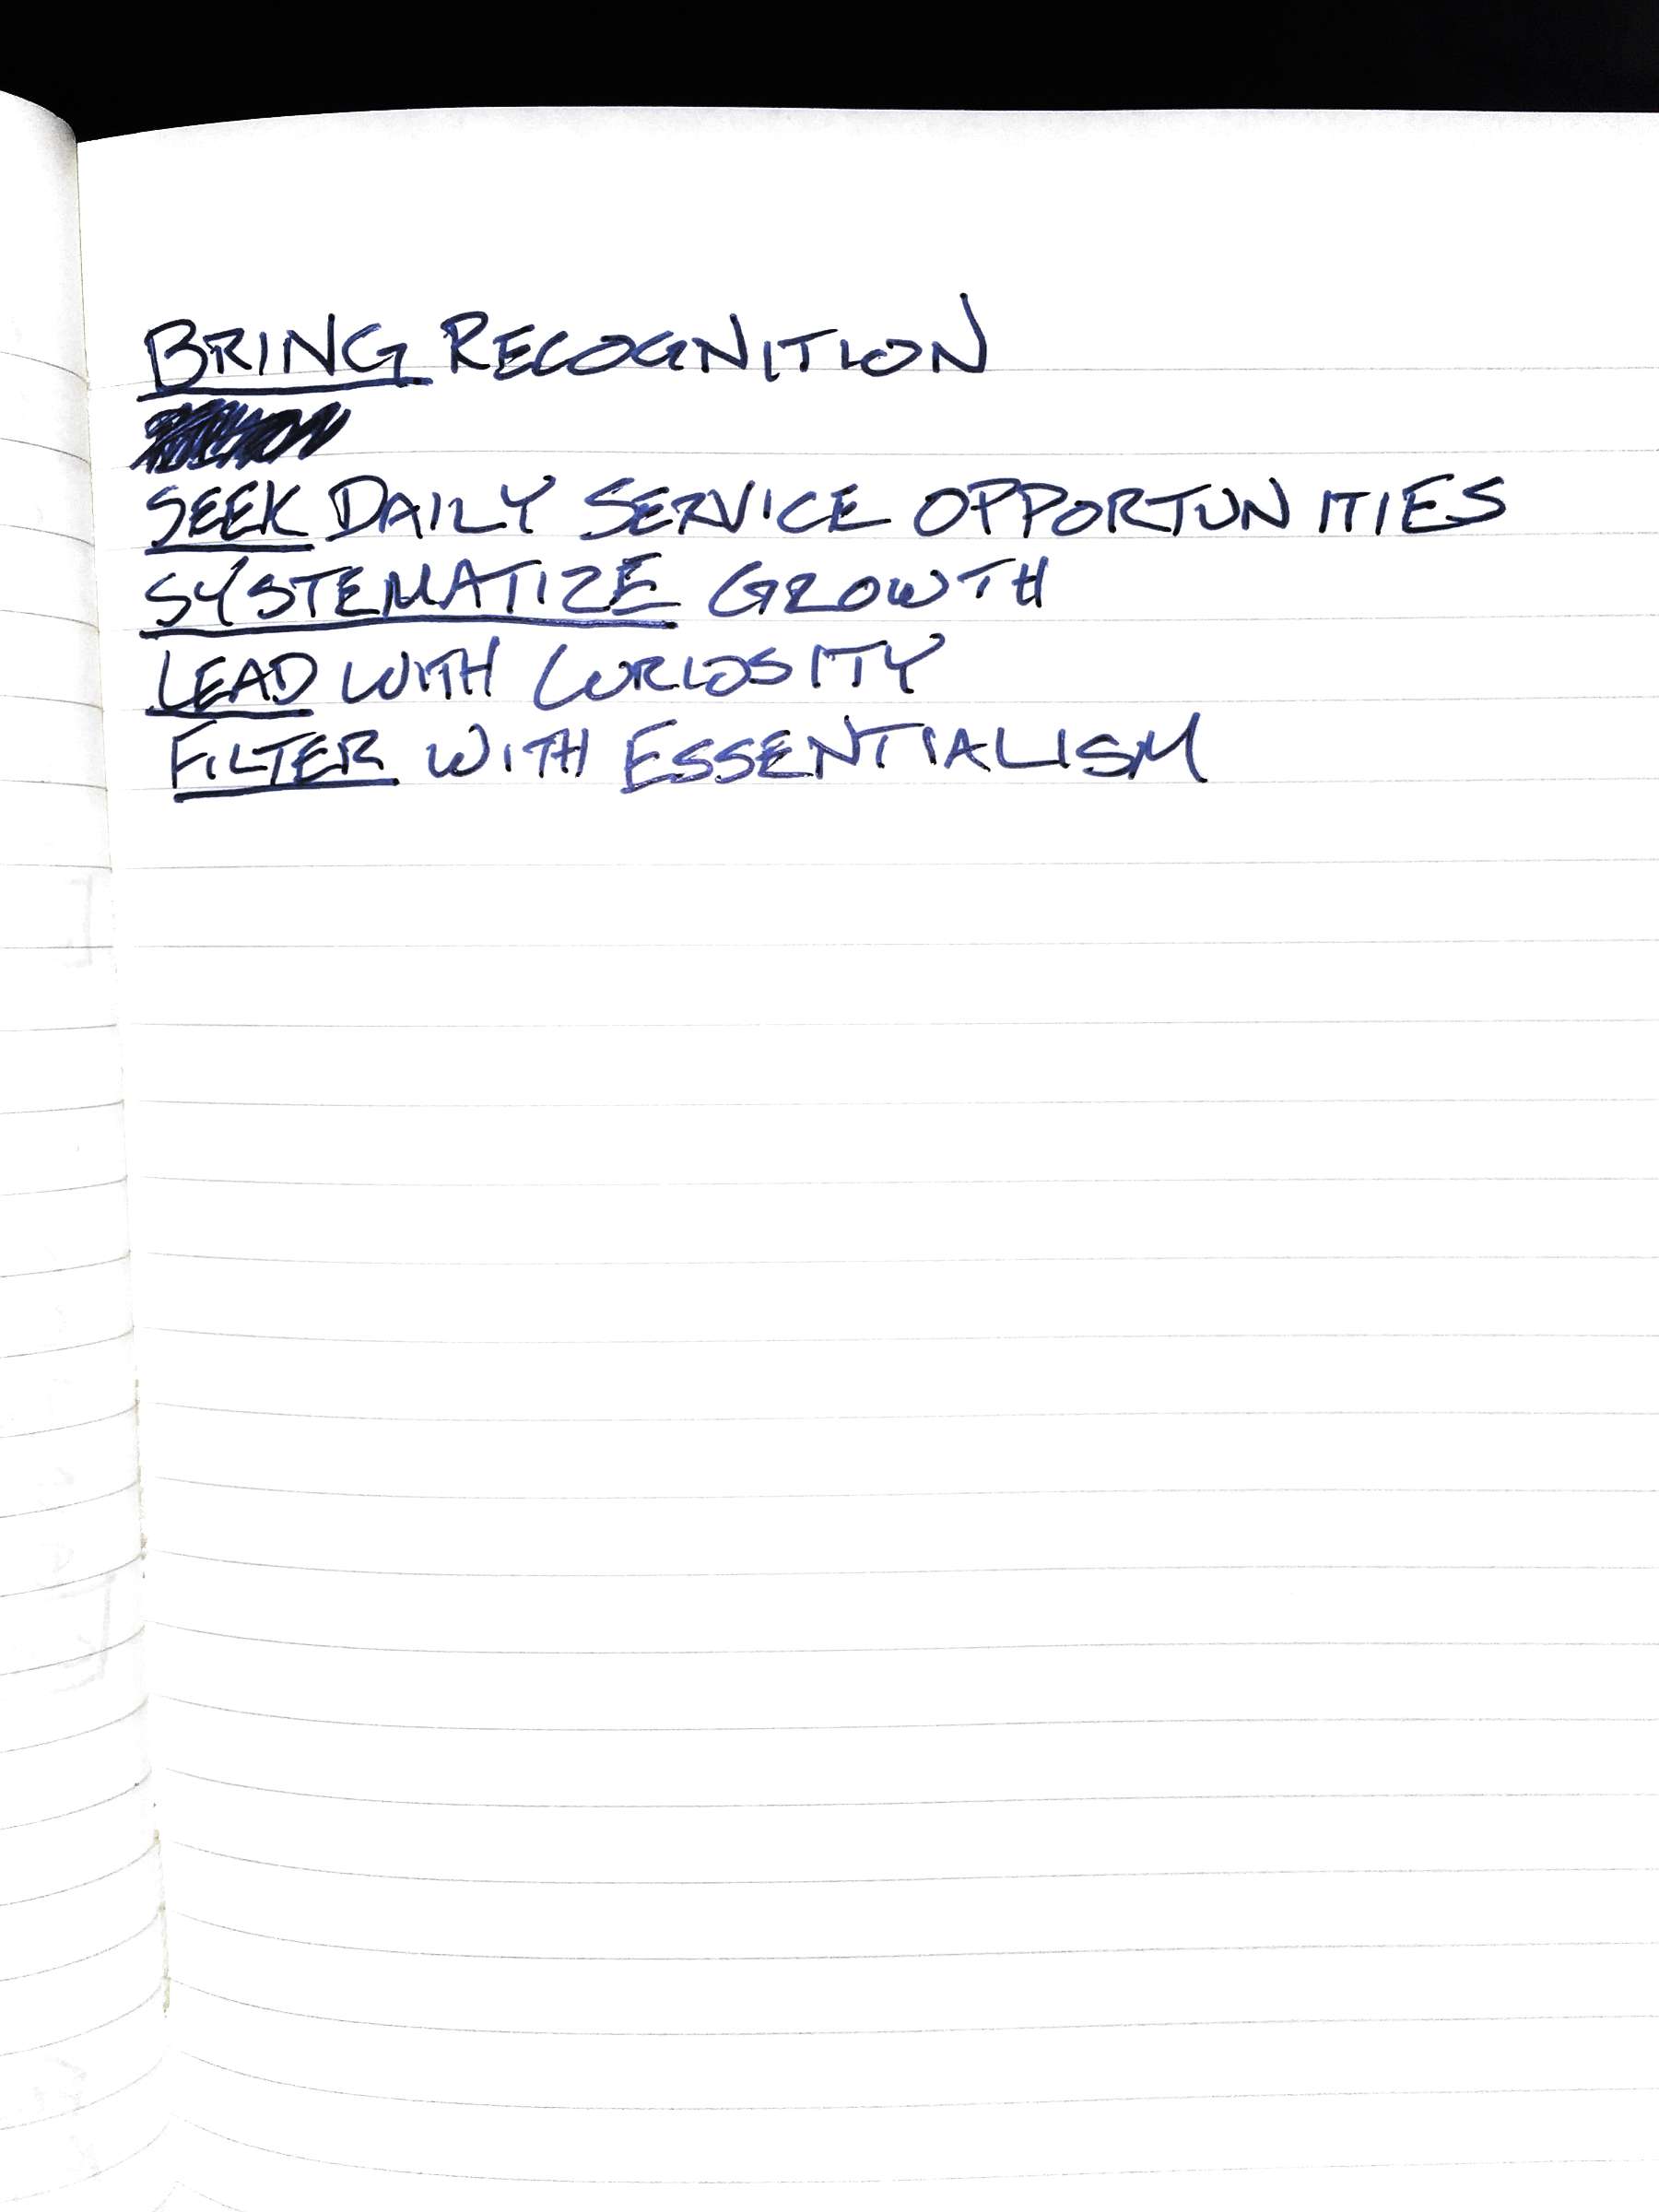 BRING RECOGNITION
SEEK DAILY SERVICE OPPORTUNITIES
SYSTEMATIZE GROWTH
LEAD WITH CURIOSITY
FILTER WITH ESSENTIALISM